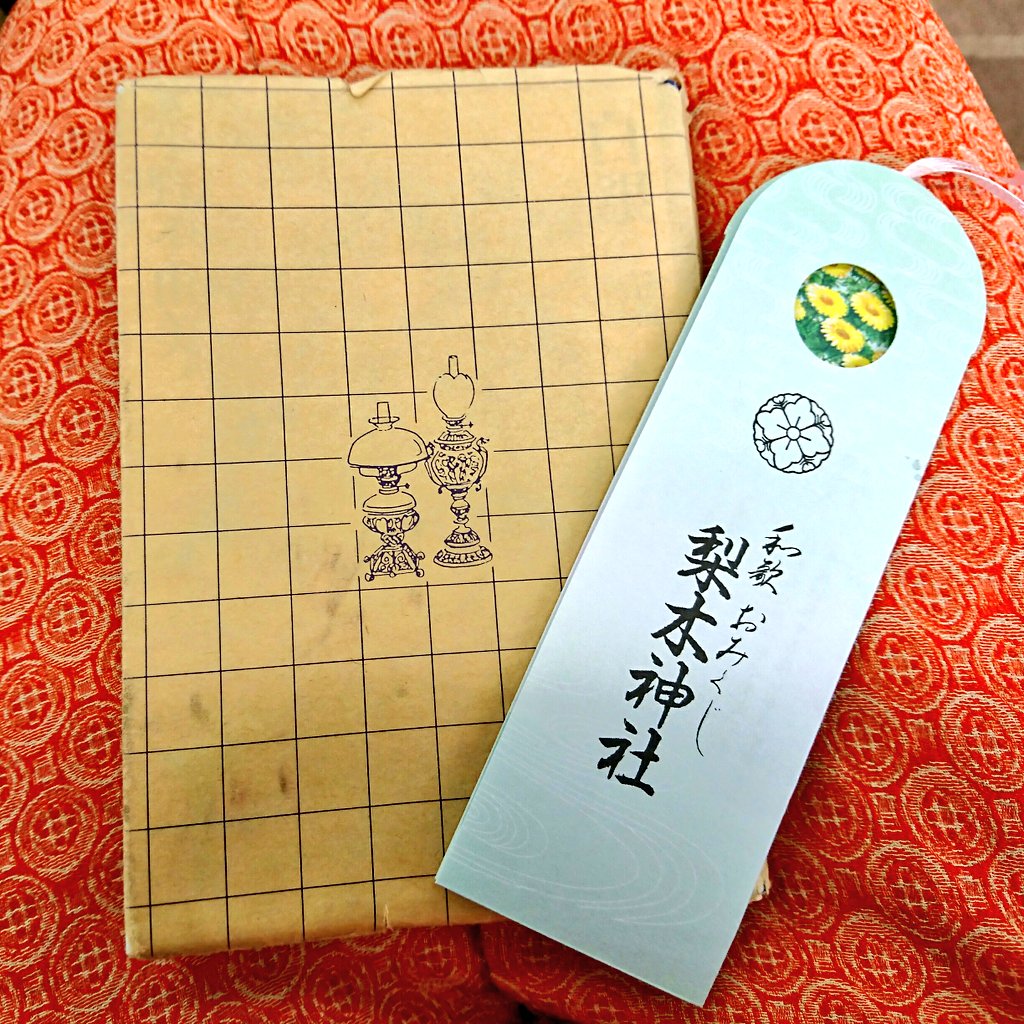 和歌 おみくじ
梨木神社